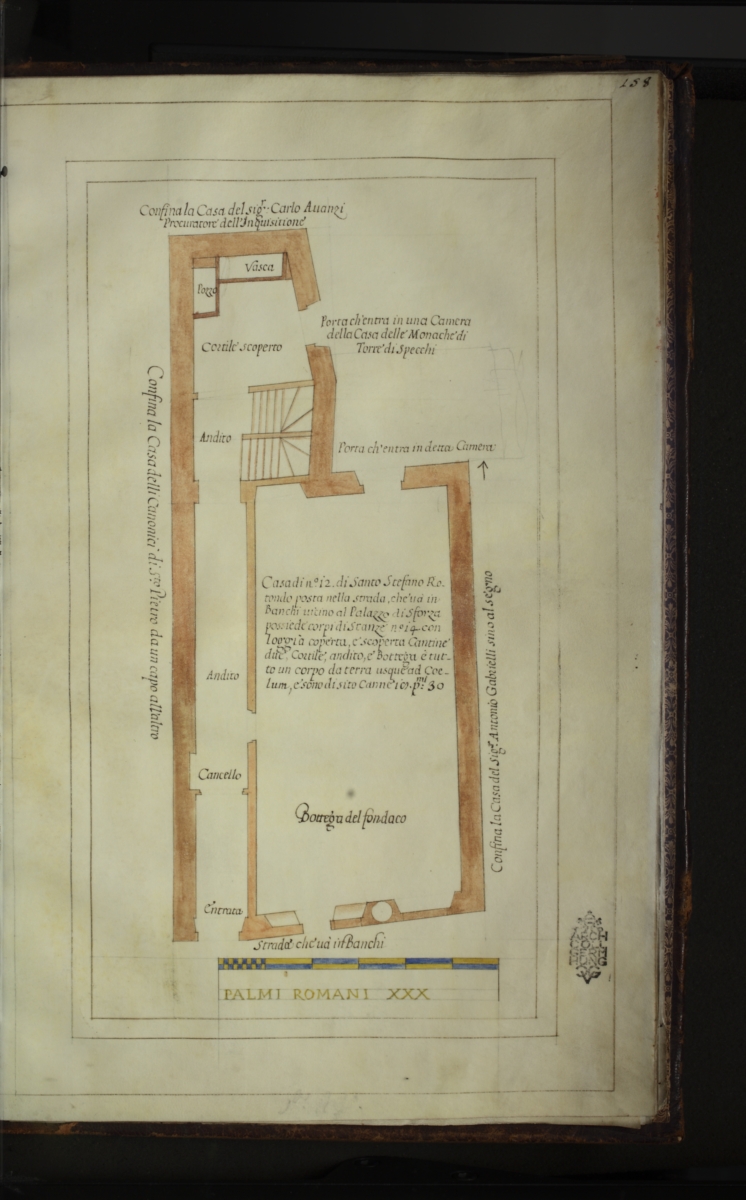 158
Confina la Casa del sigr. Carlo Auanzi
Procuratore dell'Inquisitione
Vasca
Pozzo
Porta ch'entra in una Camera
della Casa delle Monache di
Torre di Specchi
Cortile scoperto
Confina la Casa delli Canonici di Sto. Pietro da un capo all'altro
Andito
Porta ch'entra in detta Camera
Casa di n.o 12. di Santo Stefano Ro-
tondo posta nella strada, che uà in
Banchi uicino al Palazzo di Sforza
possiede corpi di Stanze n.o 14 con
loggia coperta, e scoperta Cantine
Cortile, andito, e Bottega é tut-
to un corpo da terra usque ad Coe-
lum, e sono di sito Canne 101. pmi. 30
Andito
Confina la Casa del sigr. Antonio Gabrielli sino al segno
Cancello
Bottega del fondaco
Entrata
Strada che uà in Banchi
PALMI ROMANI XXX